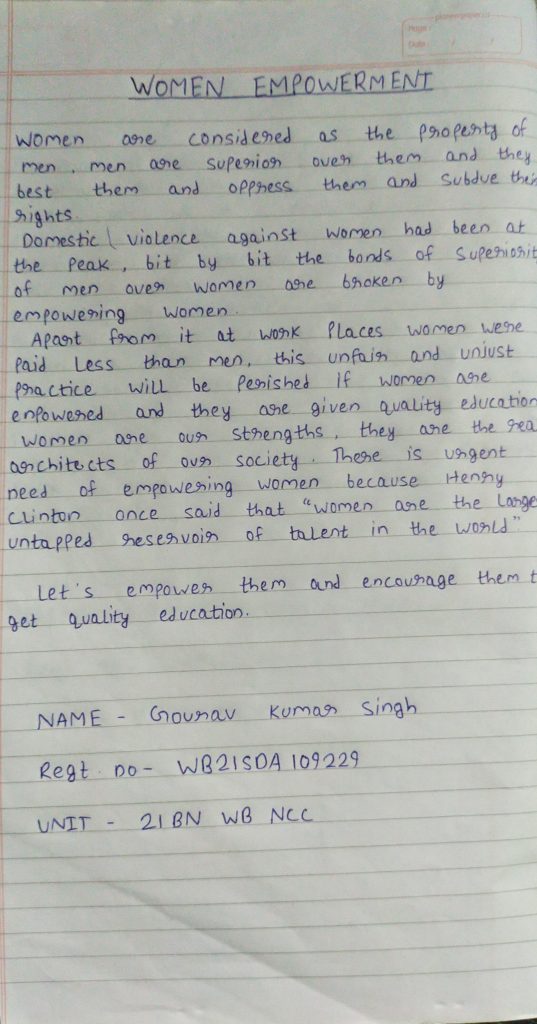 Page :
Date : / /
WOMEN EMPOWERMENT
Women are considered as the property of
men, men are superior over them and they
best them and oppress them and subdue their
rights.
Domestic violence against women had been at
the peak, bit by bit the bonds of Superiorit
of men over women are broken by
empowering women.
Apart from it at work places women were
paid less than men, this unfair and unjust
practice will be perished if women are
enpowered and they are given quality education
women are our strengths, they are the rea
architects of our society. There is urgent
need of empowering women because Henry
Clinton once said that "women are the large
untapped reservoir of talent in the world"
Let's empower them and encourage them t
get quality education.
NAME - Gourav Kumar Singh
Regt. no - WB21SDA109229
UNIT - 21 BN WB NCC